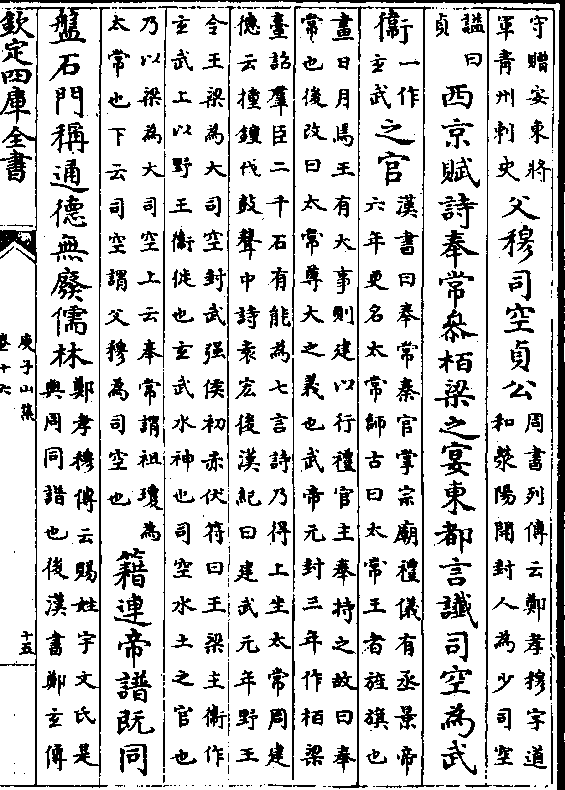 守贈安東將
軍青州刺史
父穆司空貞公
周書列傳云鄭孝穆字道
和滎陽開封人為少司空
諡曰
貞
西京賦詩奉常叅栢梁之宴東都言讖司空為武
衞
一作
玄武
之官
漢書曰奉常秦官掌宗廟禮儀有丞景帝
六年更名太常師古曰太常王者旌旗也
畫日月焉王有大事則建以行禮官主奉持之故曰奉
常也後改曰太常尊大之義也武帝元封三年作栢梁
臺詔羣臣二千石有能為七言詩乃得上坐太常周建
德云撞鐘伐鼓聲中詩袁宏後漢紀曰建武元年野王
令王梁為大司空封武强侯初赤伏符曰王梁主衞作
玄武上以野王衞徙也玄武水神也司空水土之官也
乃以梁為大司空上云奉常謂祖瓊為
太常也下云司空謂父穆為司空也
籍連帝譜既同
盤石門稱通德無廢儒林
鄭孝穆傳云賜姓宇文氏是
與周同譜也後漢書鄭玄傳
欽定四庫全書
庾子山集
卷十六
十五